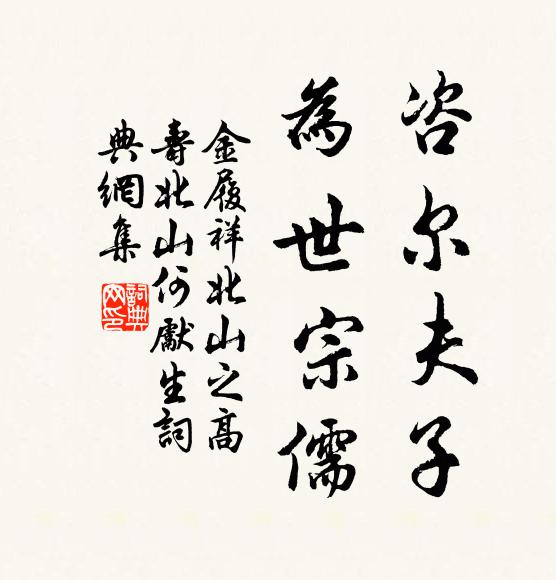 咨尔夫子
為世宗儒
金履祥北山之高
壽北山何獻生詞
典網集
詞典網印